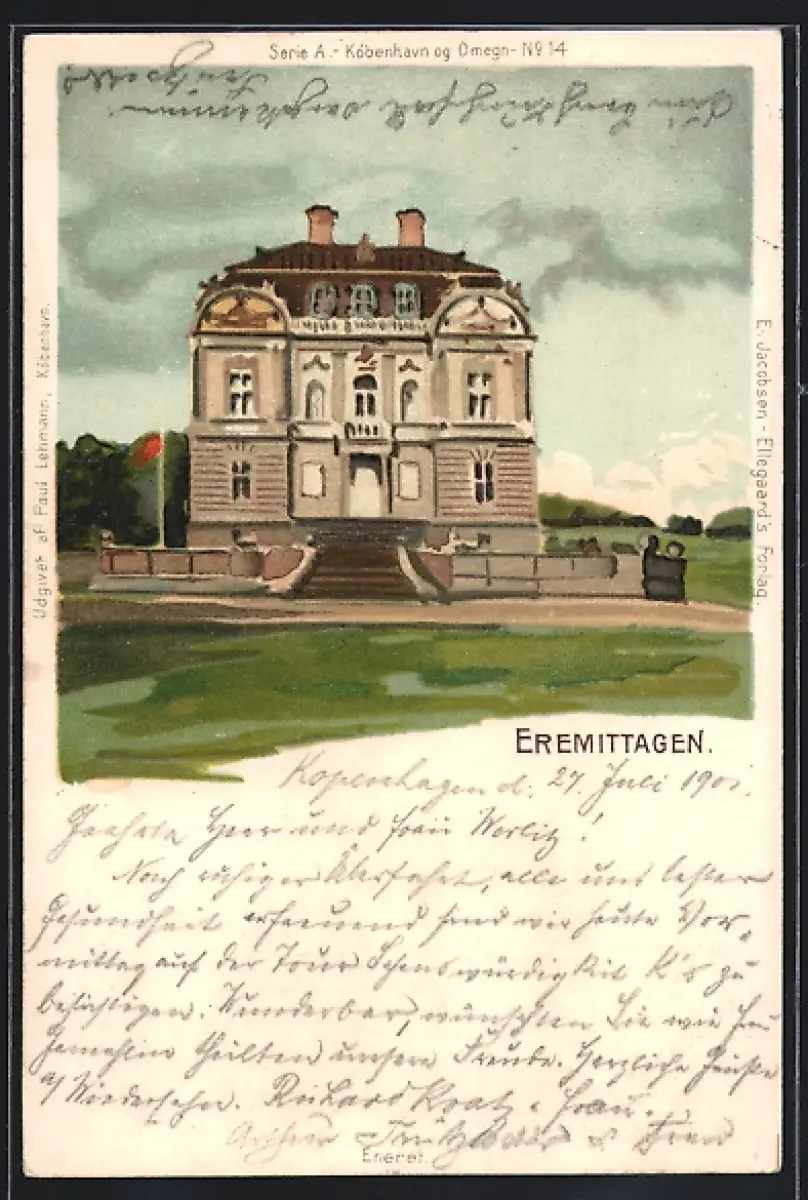 Serie A.- Köbenhavn og Omegn- No 14
Udgivet af Paul Lehmann, Köbenhavn.
E. Jacobsen - Ellegaard's Forlag.
EREMITTAGEN.
Kopenhagen d. 27. Juli 1901.
Geehrte Herr und Frau Worlitz!
Nach ruhiger Überfahrt, alle uns bester
Gesundheit erfreuend sind wir heute Vor-
mittag auf der Tour Sehenswürdigkeit K's zu
besichtigen. Wunderbar, wünschten Sie wie Frau
Gemahlin theilten unsere Freude. Herzliche Grüße
a/ Wiedersehn. Richard Kratz u. Frau.
Arthur & Frau
Eneret.